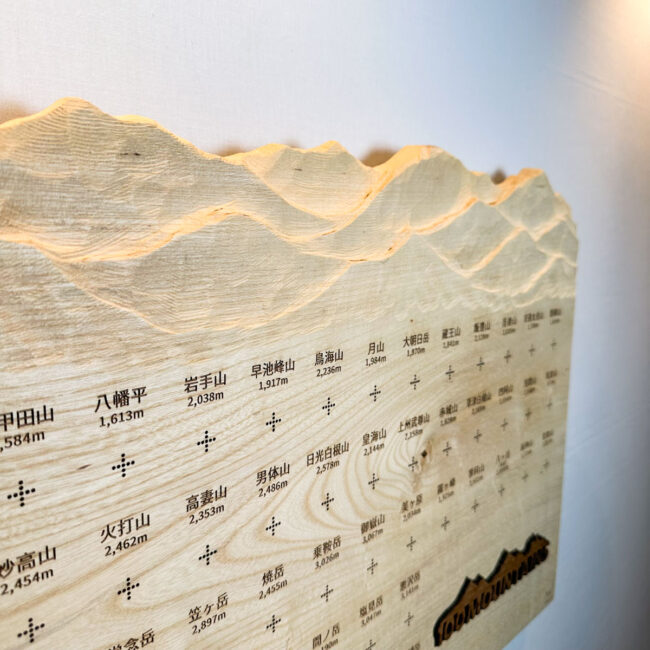 甲田山
,584m
八幡平
1,613m
岩手山
2,038m
早池峰山
1,917m
鳥海山
2,236m
月山
1,984m
大朝日岳
1,870m
蔵王山
1,841m
飯豊山
火打山
2,462m
高妻山
2,353m
男体山
2,486m
日光白根山
2,578m
皇海山
2,144m
上州武尊山
2,158m
赤城山
1,828m
草津白根山
四阿山
妙高山
2,454m
常念岳
笠ヶ岳
2,897m
焼岳
2,455m
乗鞍岳
3,026m
御嶽山
3,067m
美ヶ原
2,034m
霧ヶ峰
1,925m
間ノ岳
塩見岳
3,047m
悪沢岳
3,141m
100 MOUNTAINS